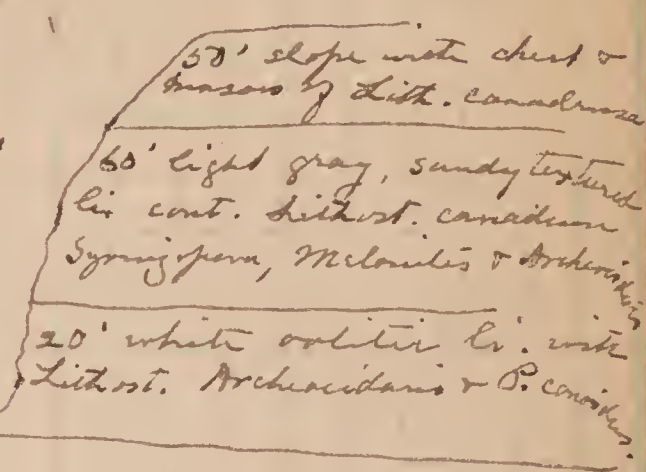 50' slope with chert &
masses of Lith. canadense
60' light gray, sandy textured
li. cont. Lithost. canadense
Syringopora, Melonites & Archeocidaris
20' white oolitic li. with
Lithost. Archeocidaris & P.